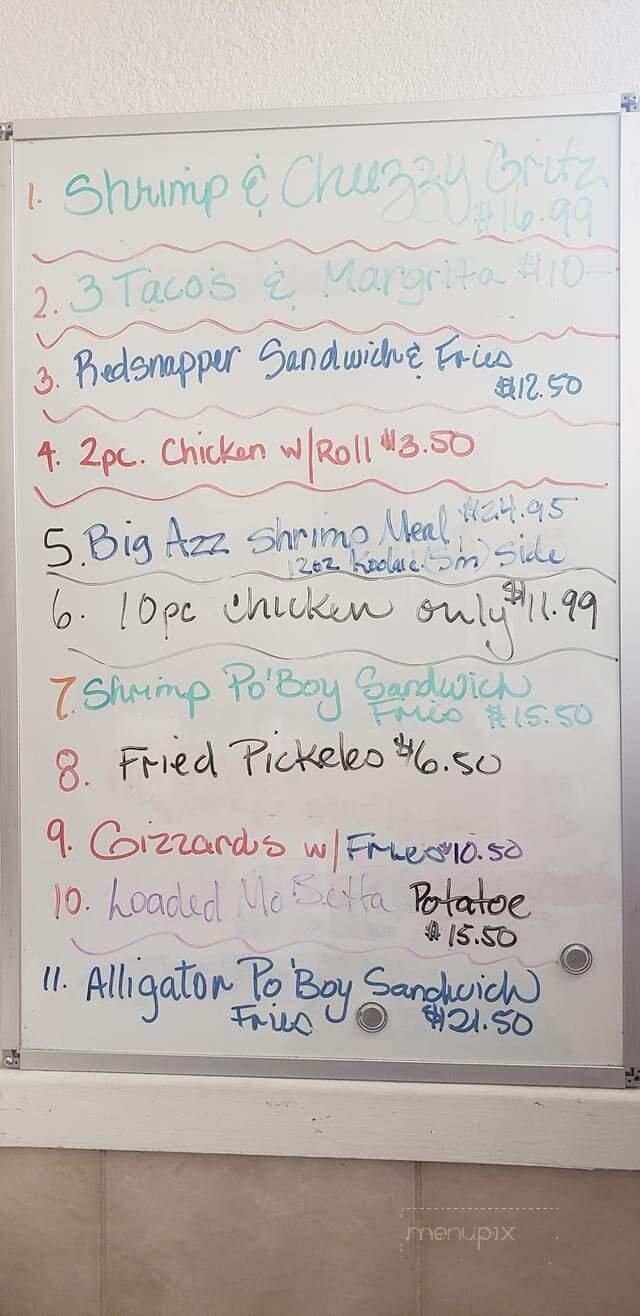 1. Shrimp & Cheezzy Gritz
$16.99
2. 3 Tacos & Margrita $10-
3. Redsnapper Sandwich & Fries
$12.50
4. 2pc. Chicken w/Roll $3.50
5. Big Azz Shrimp Meal $24.95
12oz Koolaid (Sm) Side
6. 10pc chicken only $11.99
7. Shrimp Po'Boy Sandwich
Fries $15.50
8. Fried Pickeles $6.50
9. Gizzards w/ Fries $10.50
10. Loaded Mo Betta Potatoe
$15.50
11. Alligator Po'Boy Sandwich
Fries $21.50
menupix